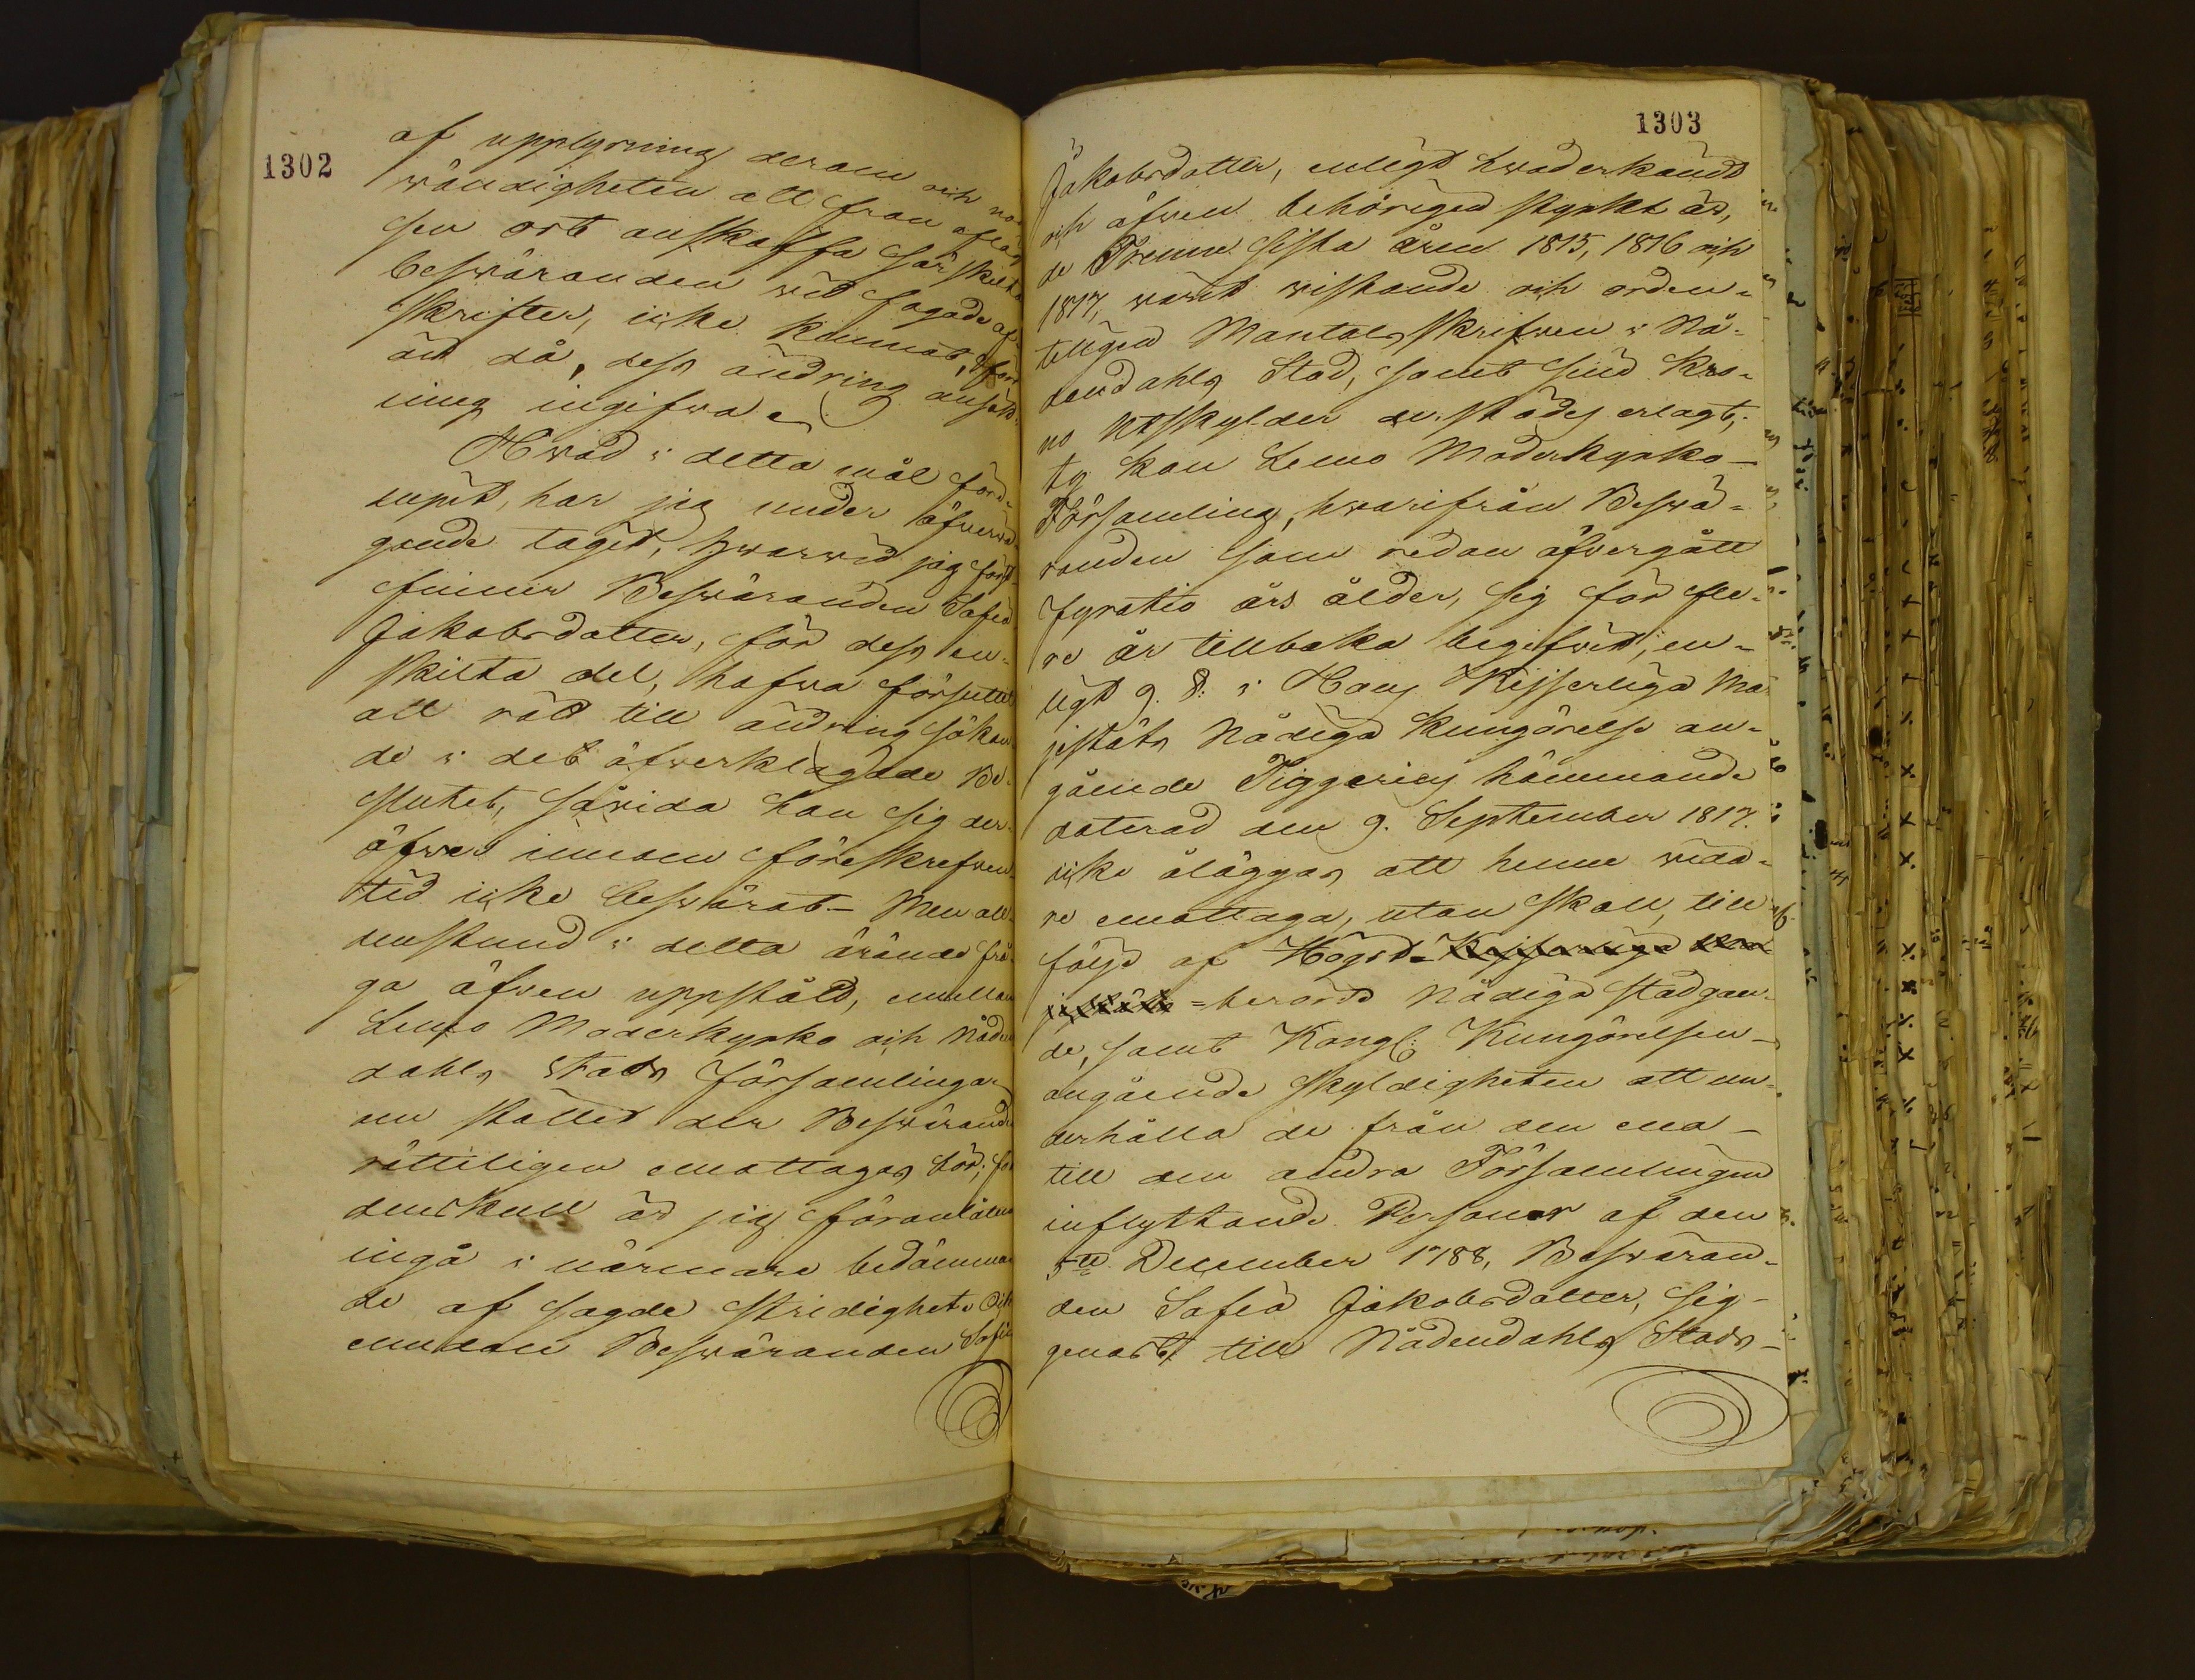 1302
af upplysning derom och nöd
wändigheten att från aflägs
sen ort anskaffa särskilta
beswäranden wid fogade af
skrifter, icke kunnat, för
än då, dess ändring ansök
ning ingifwa.
Hwad i detta mål före¬
lupit, har jag under öfverwä
gande tagit, hwarwid jag först
finner Beswäranden Sofia
Jakobsdotter, för dess en¬
skilta del, hafwa försuttit
all rätt till ändring sökan
de i det öfwerklagade Be¬
slutet, såvida hon sig der¬
öfwer innom föreskrefwen
tid icke beswärat. Men all¬
denstund i detta ärende frå
ga äfwen uppstått, emellan
Lemo Moderkyrko och Nåden
dahls Stads församlingar
om stället der Beswäranden
rätteligen emottagas bör; för
denskull är jag föranlåten
ingå i närmare bedömman
de af sagde stridighet. Och
emedan Beswäranden Sofia
1303
Jakobsdotter, enligt hwad erkändt
och äfwen behörigen styrkt är,
de Trenne sista åren 1815, 1816 och
1817, warit wistande och orden¬
teligen Mantalsskrifwen i Nå¬
dendahls Stad, samt sine Kro¬
no utskylder derstädes erlagt;
ty kan Lemo Moderkyrko
Församling, hwarifrån Beswä¬
randen som redan öfvergått
fyratio års ålder, sig för fle¬
re år tillbaka begifwit, en¬
ligt 9. §. i Hans Kejserliga Ma
jestäts Nådiga Kungörelse an¬
gående Tiggeriets hämmande
daterad den 9. September 1817.
icke åläggas att henne wida¬
re emottaga, utan skall, till
följe af Högst Kejserliga Ma
jestäts berörde Nådiga stadgan¬
de, samt Kongl: Kungörelsen
angående skyldigheten att un¬
derhålla de från den ena
till den andra Församlingen
inflyttande Personer af den
5te December 1788, Beswäran¬
den Sofia Jakobsdotter, sig
genast till Nådendahls Stads